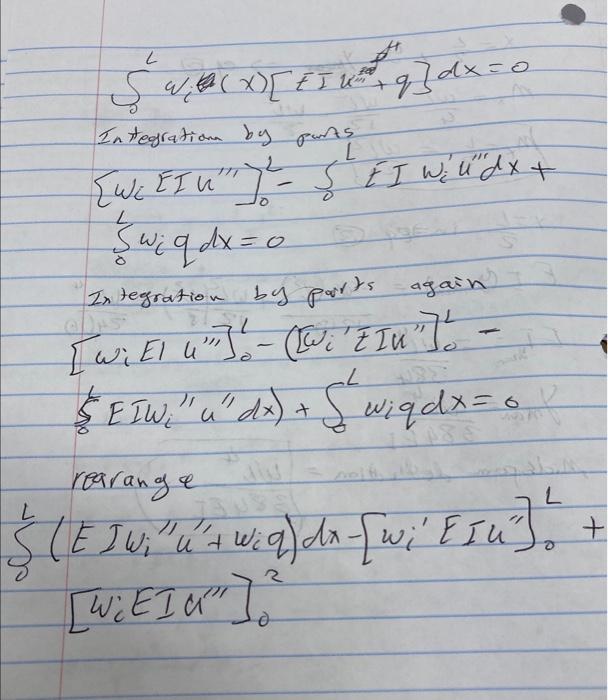 ∫₀ᴸ wᵢ(x)[EIu'''' + q]dx = 0
Integration by parts
[wᵢ EIu''']₀ᴸ - ∫₀ᴸ EI wᵢ'u'''dx +
∫₀ᴸ wᵢ q dx = 0
Integration by parts again
[wᵢ EI u''']₀ᴸ - ([wᵢ'EIu'']₀ᴸ -
∫₀ᴸ EIwᵢ''u''dx) + ∫₀ᴸ wᵢq dx = 0
rearange
∫₀ᴸ (EIwᵢ''u'' + wᵢq)dx - [wᵢ'EIu'']₀ᴸ +
[wᵢEIu''']₀²